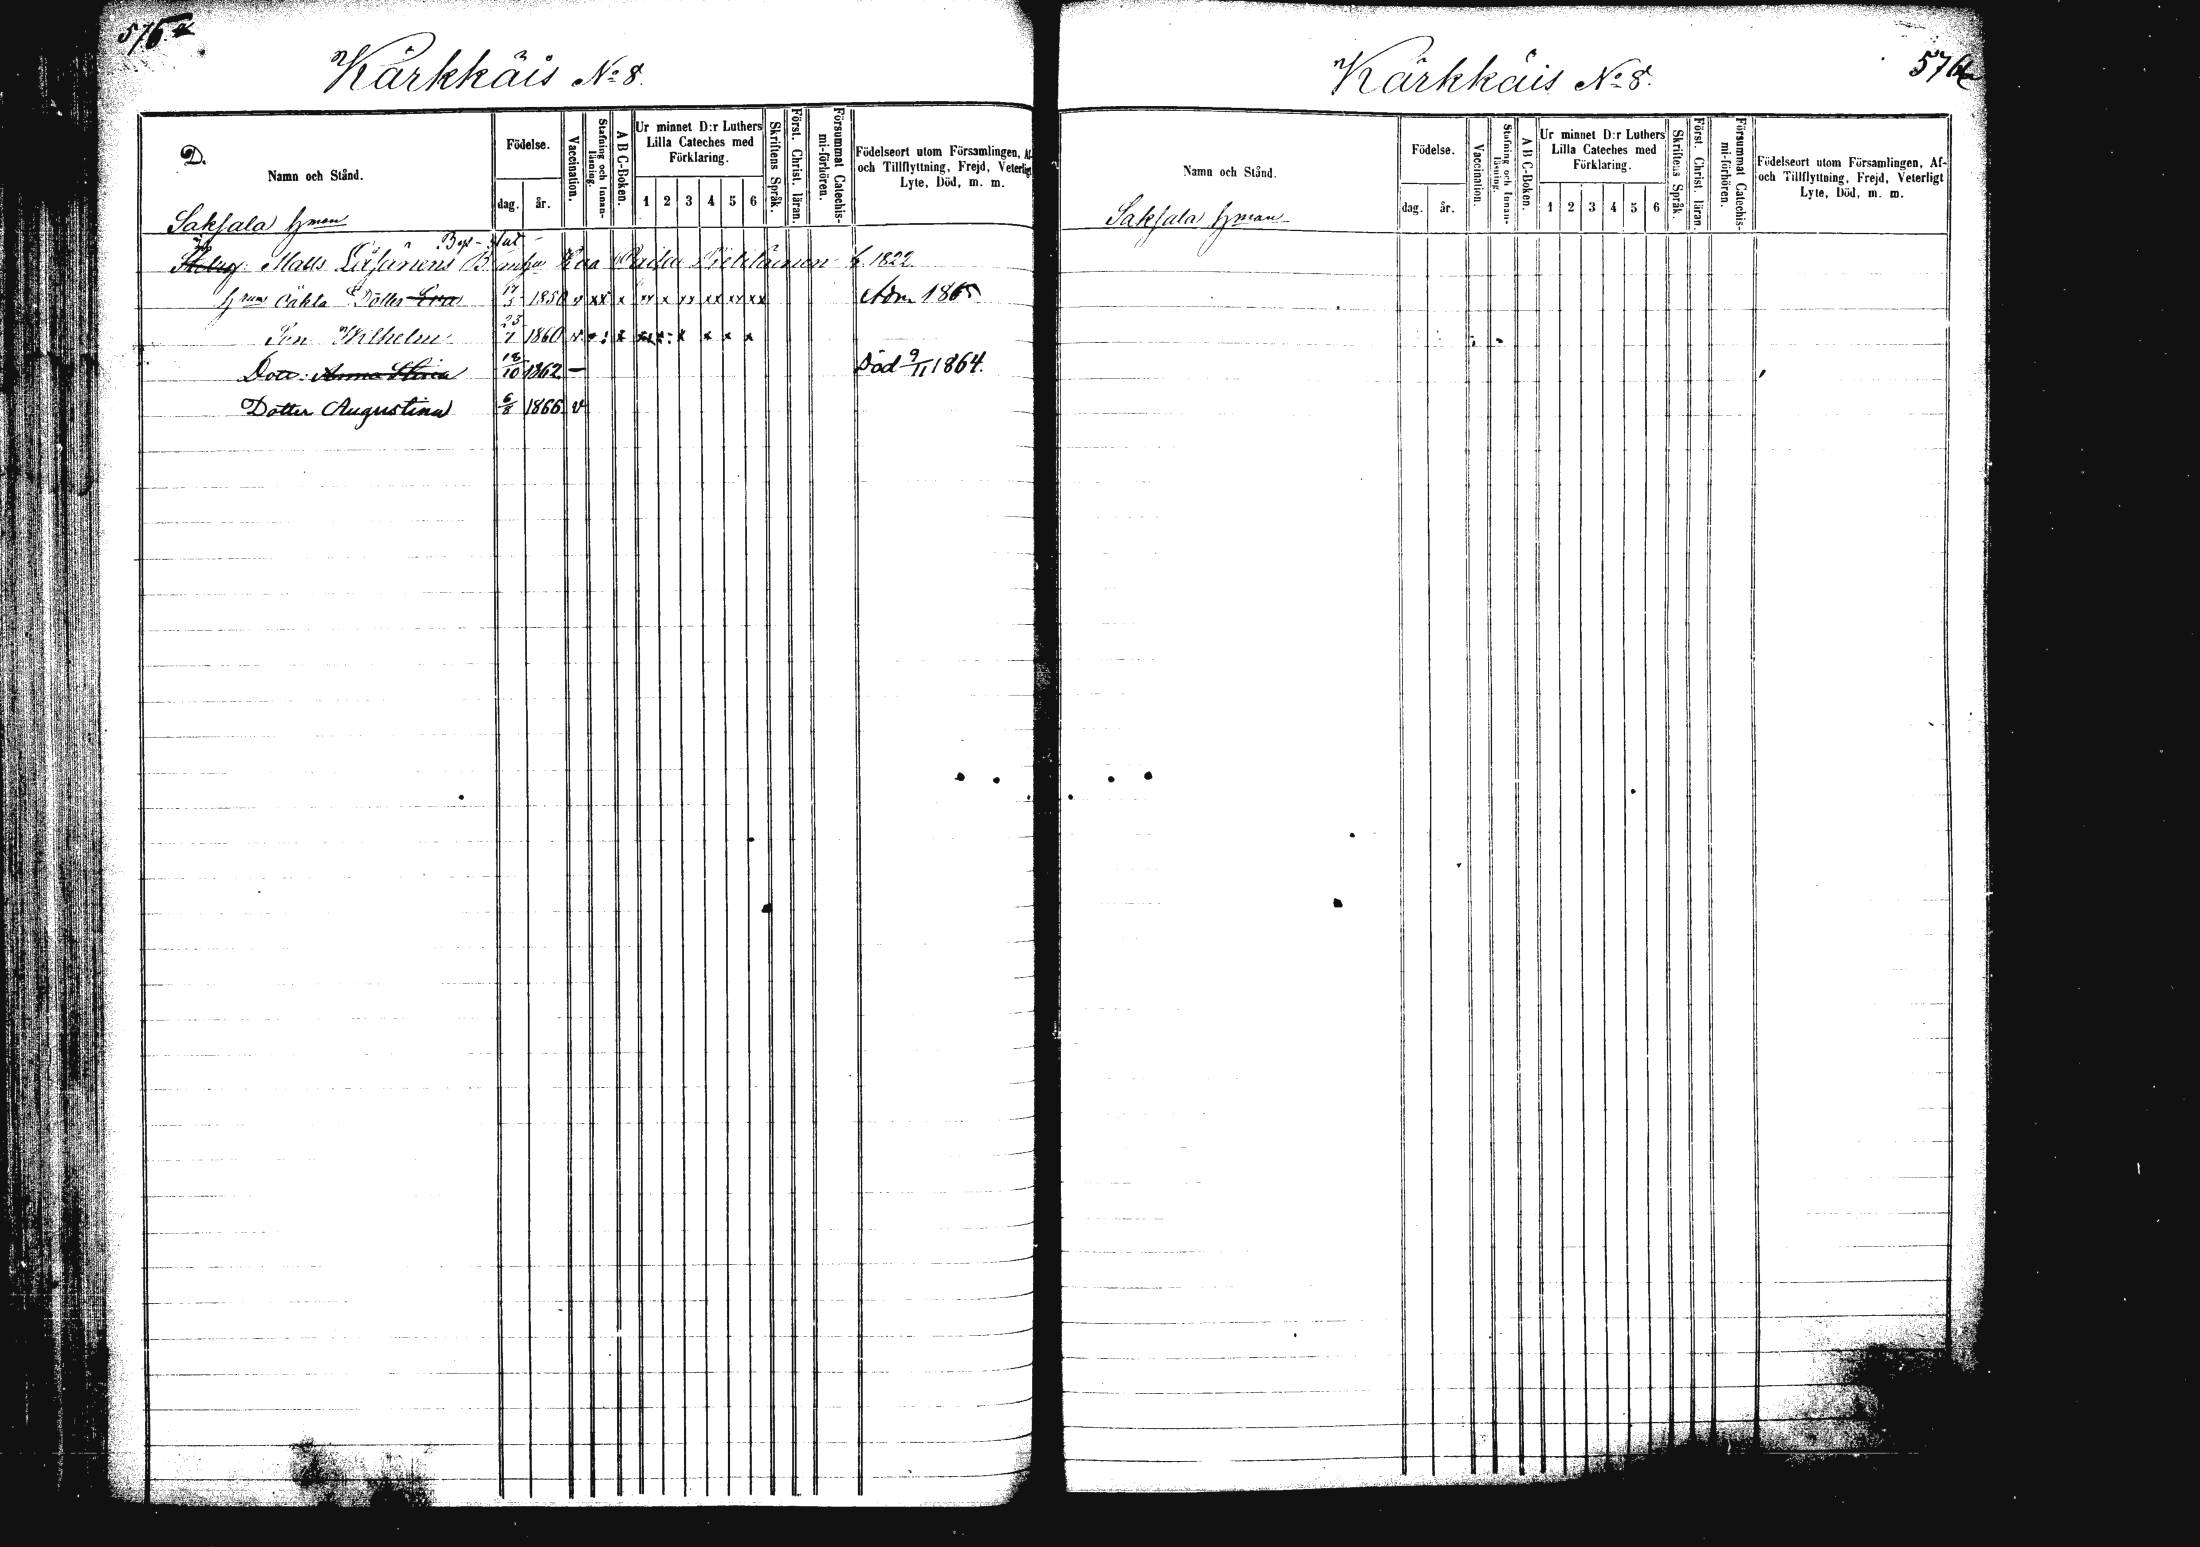 576
Kärkkäis No 8.
D.
Namn och Stånd.
Födelse.
dag.
år.
Vaccination.
Stafning och Innan-läsning.
A B C-Boken.
Ur minnet D:r Luthers Lilla Cateches med Förklaring.
1 2 3 4 5 6
Skriftens Språk.
Först. Christ. läran.
Försummat Catechis-mi-förhören.
Födelseort utom Församlingen, Af-
och Tillflyttning, Frejd, Veterligt
Lyte, Död, m. m.
Saksala hman
Matts Kaisa f. 1822.
Dotter Eva 1850 v xx x xx x xx xx xx xx Adm 1865
Son Wilhelm 23/7 1860 v x x x x
Dott: Anna Stina 18/10 1862 — Död 9/11 1864.
Dotter Augustina 6/8 1866 v
Kärkkäis No 8.
576
Namn och Stånd.
Födelse.
dag.
år.
Vaccination.
Stafning och Innan-läsning.
A B C-Boken.
Ur minnet D:r Luthers
Lilla Cateches med
Förklaring.
1 2 3 4 5 6
Skriftens Språk.
Först. Christ. läran.
Försummat Catechis-mi-förhören.
Födelseort utom Församlingen, Af-
och Tillflyttning, Frejd, Veterligt
Lyte, Död, m. m.
Saksala hman